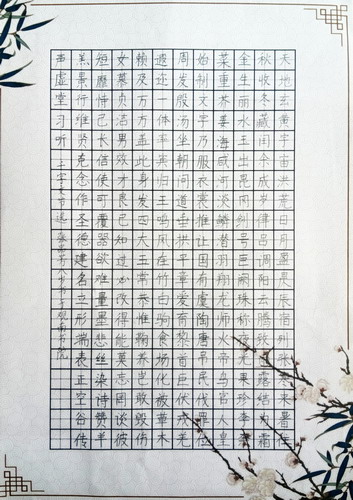 天地玄黄宇宙洪荒日月盈昃辰宿列张寒来暑往
秋收冬藏闰余成岁律吕调阳云腾致雨露结为霜
金生丽水玉出昆冈剑号巨阙珠称夜光果珍李柰
菜重芥姜海咸河淡鳞潜羽翔龙师火帝鸟官人皇
始制文字乃服衣裳推位让国有虞陶唐吊民伐罪
周发殷汤坐朝问道垂拱平章爱育黎首臣伏戎羌
遐迩一体率宾归王鸣凤在竹白驹食场化被草木
赖及万方盖此身发四大五常恭惟鞠养岂敢毁伤
女慕贞洁男效才良已知过必改得能莫忘罔谈彼
短靡恃己长信使可覆器欲难量墨悲丝染诗赞羊
羔景行维贤克念作圣德建名立形端表正空谷传
声虚堂习听 千字文节选